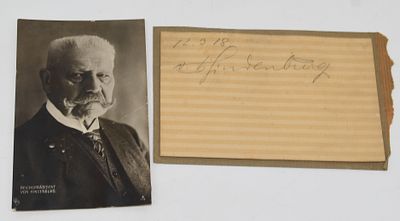 REICHSPRÄSIDENT
VON HINDENBURG
12.9.18.
v. Hindenburg